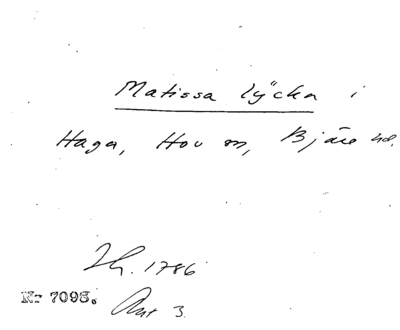 Matissa lÿcka i
Haga, Hov sn, Bjäre hd.
Lh. 1786
Nr 7098. Akt 3.